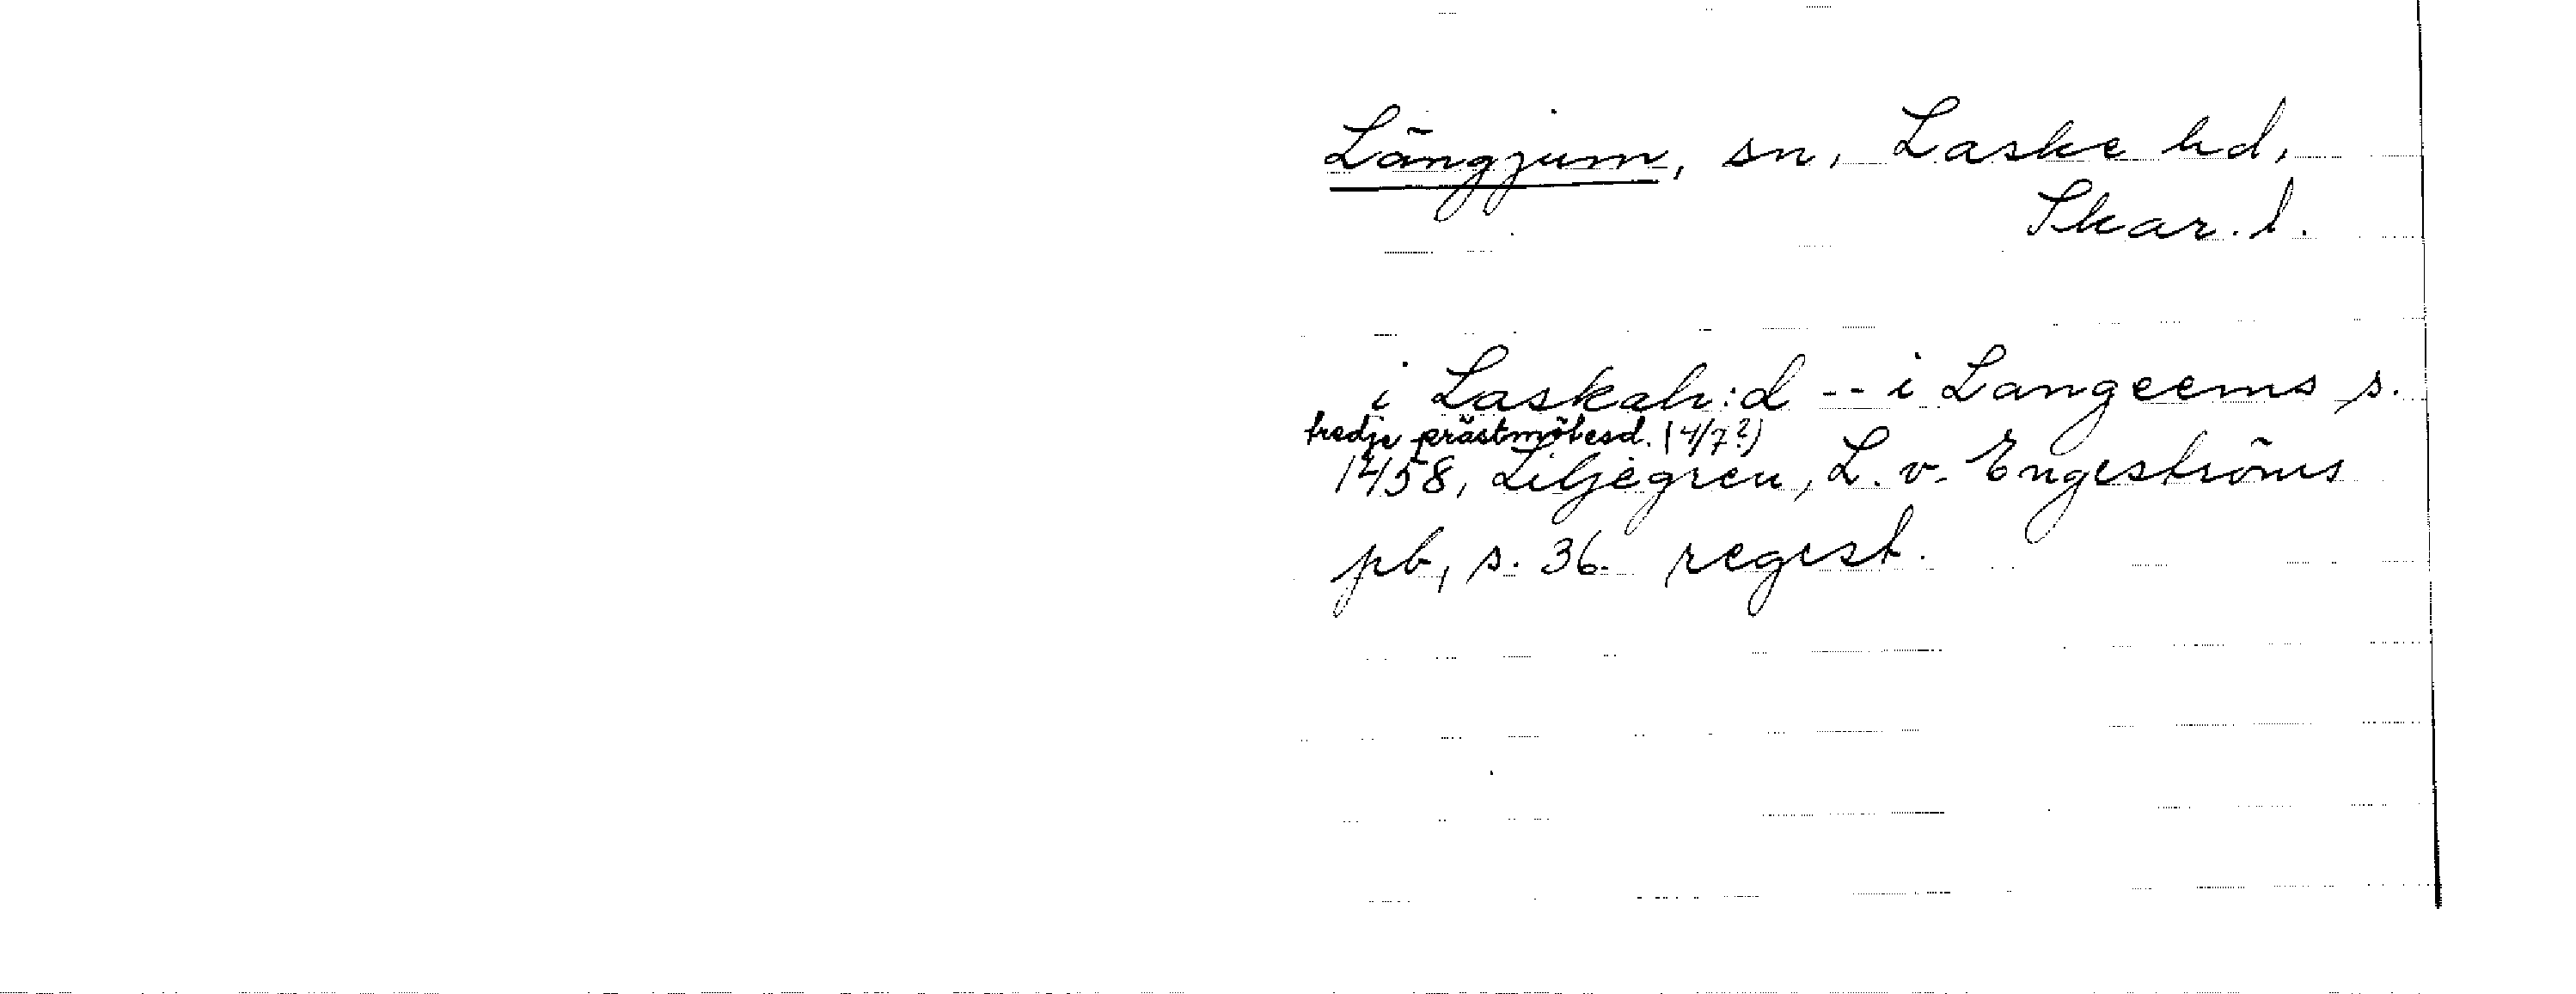 Längjum, sn, Laske hd,
Skar. l.
i Laskah:d -- i Langeems s.
tredje prästmötesd. (4/7?)
1458, Liljegren, L. v. Engeströms
pb, s. 36. regest.